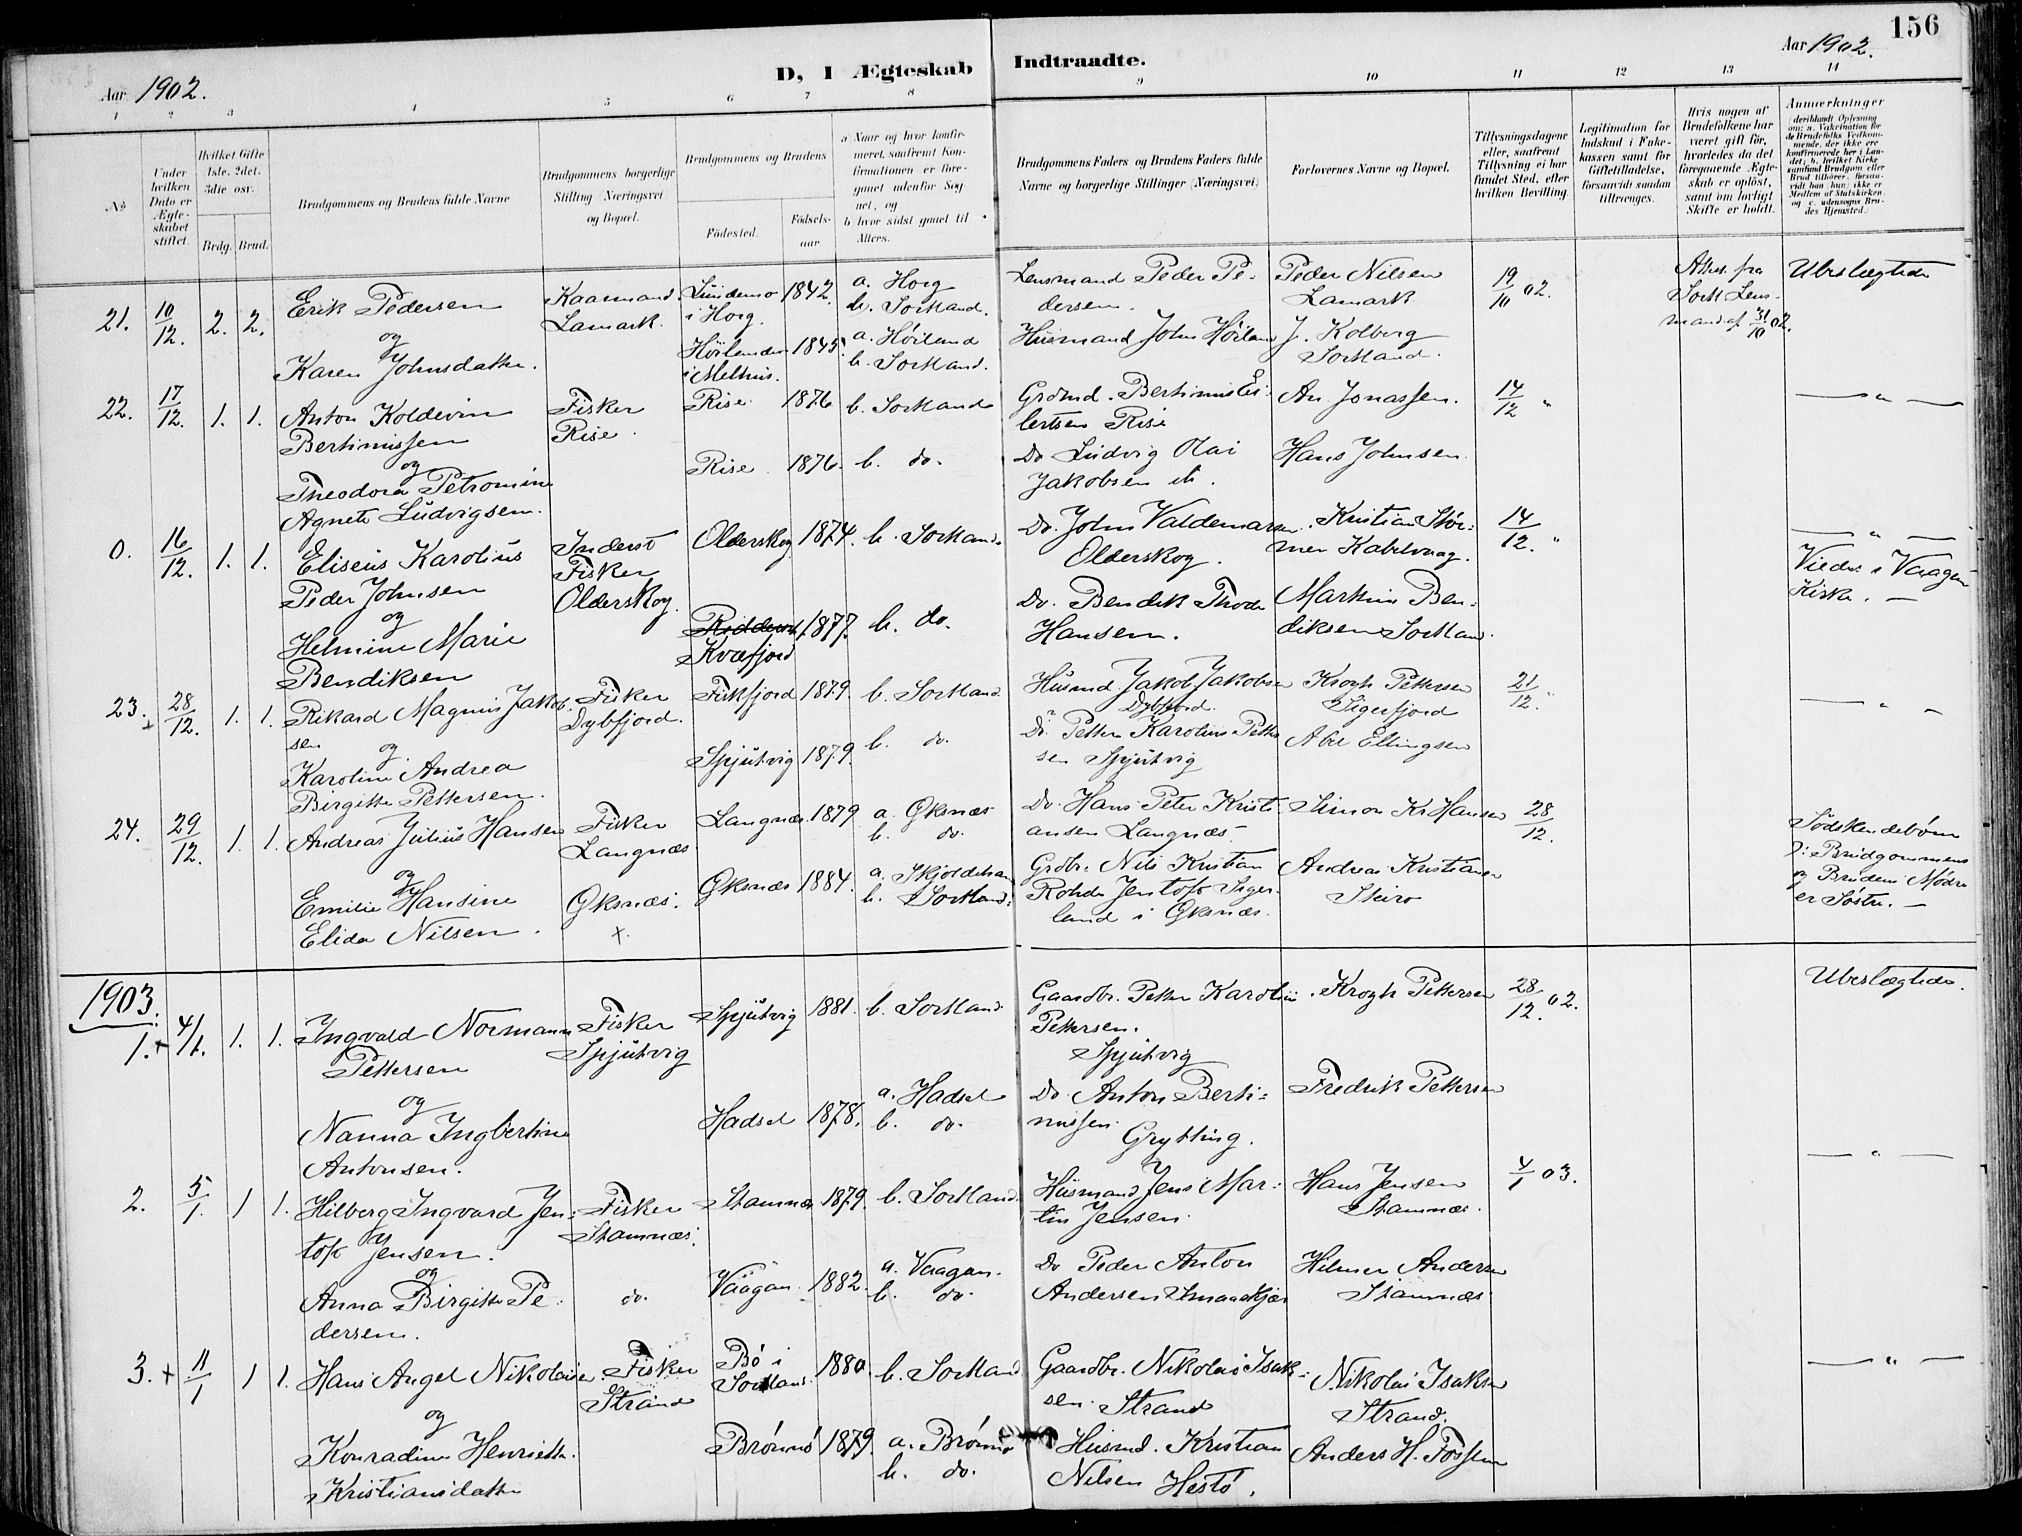 156
Aar 1902.
D, I Ægteskab Indtraadte.
Aar 1902.
1 2 3 4 5 6 7 8 9 10 11 12 13 14
No
Under hvilken Dato er Ægteskabet stiftet.
Hvilket Gifte 1ste. 2det. 3die osv.
Brdg. Brud.
Brudgommens og Brudens fulde Navne
Brudgommens borgerlige Stilling (Næringsvei) og Bopæl.
Brudgommens og Brudens
Fødested. Fødselsaar.
a Naar og hvor konfirmeret, saafremt Konfirmationen er foregaaet udenfor Sognet, og
b hvor sidst gaaet til Alters.
Brudgommens Faders og Brudens Faders fulde Navne og borgerlige Stillinger (Næringsvei)
Forlovernes Navne og Bopæl.
Tillysningsdagene eller, saafremt Tillysning ei har fundet Sted, efter hvilken Bevilling
Legitimation for Indskud i Enkekassen samt for Giftetilladelse, forsaavidt saadan tiltrænges.
Hvis nogen af Brudefolkene har været gift før, hvorledes da det foregaaende Ægteskab er opløst, samt om lovligt Skifte er holdt.
Anmærkninger
21. 10/12. 2. 2.
Erik Pedersen
og
Karen Johnsdatter.
Kaarmand
Lamark.
Lündemo i Horg. 1842.
Höilandet i Melhus. 1845.
a. Horg
b. Sortland.
a. Høiland
b. Sortland.
Lensmand Peder Pedersen.
Husmand John Høiland
Peder Nilsen
Lamark
J. Kolberg
Sortland.
19/10 02.
Attest fra
Sortl. Lensmand af 31/10 02.
Ubeslægtede
22. 17/12. 1. 1.
Anton Koldevin
Bertinussen
og
Theodora Petromine
Agnete Ludvigsen.
Fisker
Rise.
Rise. 1876
Rise. 1876.
b. Sortland
b. do.
Grdmd. Bertinus Eilertsen Rise
Do Ludvig Olai
Jakobsen ib.
An Jonassen.
Hans Johnsen
14/12 "
— " —
0. 16/12. 1. 1.
Eliseus Karolius
Peder Johnsen
og
Helmine Marie
Bendiksen
Inderst
Fisker
Olderskog.
Olderskog 1874.
Kvæfjord 1877.
b. Sortland.
b. do.
Do. John Valdemarsen
Olderskog.
Do. Bendik Thode
Hansen.
Kristian Störmer Kabelvaag.
Martin Bendiksen Sortland.
14/12. "
— " —
Viede i Vaagan
Kirke. —
23. + 28/12. 1. 1.
Rikard Magnus Jakobsen
og
Karoline Andrea
Birgitte Pettersen.
Fisker
Dybfjord.
Fiskfjord 1879.
Spjutvig 1879.
b. Sortland
b. do.
Husmd. Jakob Jakobsen
Dybfjord.
Do. Petter Karolius Pettersen Spjutvig
Krogh Pettersen
Sigerfjord
Abel Ellingsen
21/12. "
— " —
24. 29/12. 1. 1.
Andreas Julius Hansen
og
Emilie Hansine
Elida Nilsen.
Fisker
Langnæs
Øksnæs.
+.
Langnæs 1879
Øksnæs 1884.
a. Øksnæs
b. do.
a. Skjoldehavn
b. Sortland.
Do. Hans Peter Kristiansen Langnæs
Grdbr. Nils Kristian
Rohde Jentoft Sigerland i Øksnæs.
Simon Kr Hansen
Andreas Kristiansen
Steiro
28/12.
Södskendebörn
o: Brudgommens
og Brudens Mødre
er Søstre. —
1903.
1. + 4/1. 1. 1.
Ingvald Normann
Pettersen
og
Nanna Ingbertine
Antonsen.
Fisker
Spjutvig
Spjutvig 1881.
Hadsel 1878.
b. Sortland
a. Hadsel
b. do.
Gaardbr. Petter Karolius
Pettersen.
Spjutvig
Do. Anton Bertinussen
Grytting.
Krogh Pettersen
Fredrik Pettersen
28/12. 02.
Ubeslægtede.
2. 5/1. 1 1.
Hilberg Ingvard Jentoft Jensen.
og
Anna Birgitte Pedersen.
Fisker
Stamnæs.
do.
Stamnæs 1879.
Vaagan 1882.
b. Sortland.
a. Vaagan.
b. do.
Husmand Jens Martin Jensen
Do Peder Anton
Andersen Smaaskjær
Hans Jensen
Stamnæs.
Hilmer Andersen
Stamnæs
4/1 03.
— " —
3. + 11/1 1 1.
Hans Angel Nikolaisen
og
Konradine Henriette
Kristiansdatter
Fisker
Strand
Bö i Sortland 1880.
Brönnö 1879.
b. Sortland
a. Brönnö
b. do.
Gaardbr. Nikolai Isaksen. Strand
Husmd. Kristian
Nilsen Hestö.
Nikolai Isaksen
Strand.
Anders H. Fossem
— " —